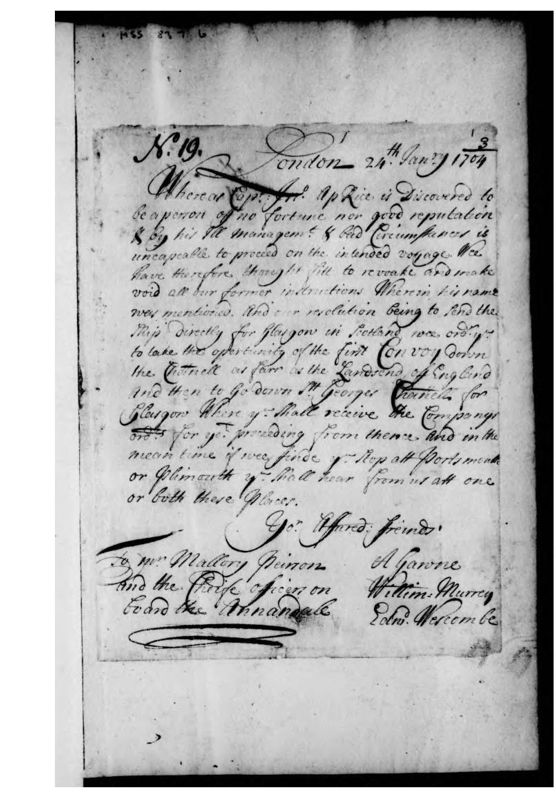 MSS 83 7 6
No. 19.
London 24th. Janry 1703/4
Whereas Capt: Jno. Ap Rice is Discovered to
be a person of no fortune nor good reputation
& by his Ill managemt. & bad Circumstances is
uncapeable to proceed on the intended voyage Wee
have therefore thought fitt to revoake and make
void all our former instructions Wherein his name
was mentioned. And our resolution being to send the
Ship directly for Glasgow in Scotland wee ordr. yu
to take the opertunity of the first Convoy down
the Channell as farr as the Landsend of England
and then to Go down St. Georges Chanell for
Glasgow Where yu shall receive the Companys
ordrs for yor. proceeding from thence and in the
mean time if wee finde yu stop att Portsmouth
or Plimouth yu shall hear from us att one
or both these Places.
Yor. Assured: freinds
To mr Mallory Peirson A Gawne
and the Cheife officers on Willim: Murrey
board the Annandale Edwd. Wescombe